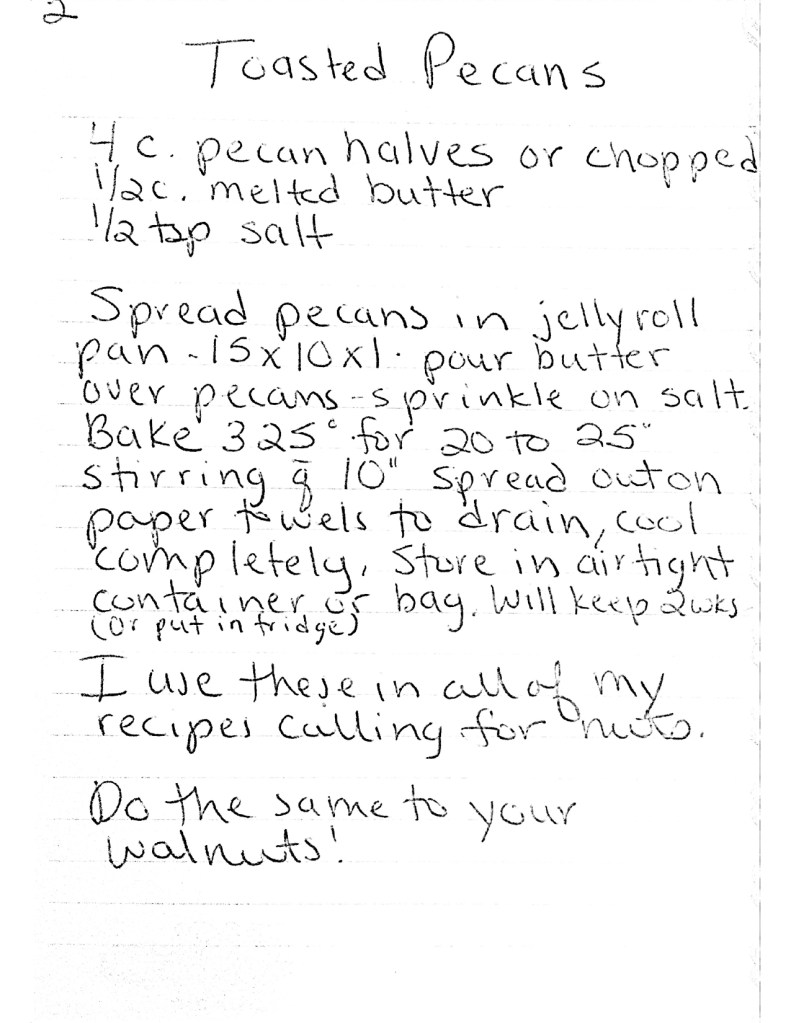 2
Toasted Pecans
4 c. pecan halves or chopped
1/2 c. melted butter
1/2 tsp salt
Spread pecans in jelly roll
pan - 15 x 10 x 1. pour butter
over pecans - sprinkle on salt.
Bake 325° for 20 to 25"
stirring q̄ 10" spread out on
paper towels to drain, cool
completely, store in airtight
container or bag. Will keep 2 wks
(or put in fridge)
I use these in all of my
recipes calling for nuts.
Do the same to your
walnuts!